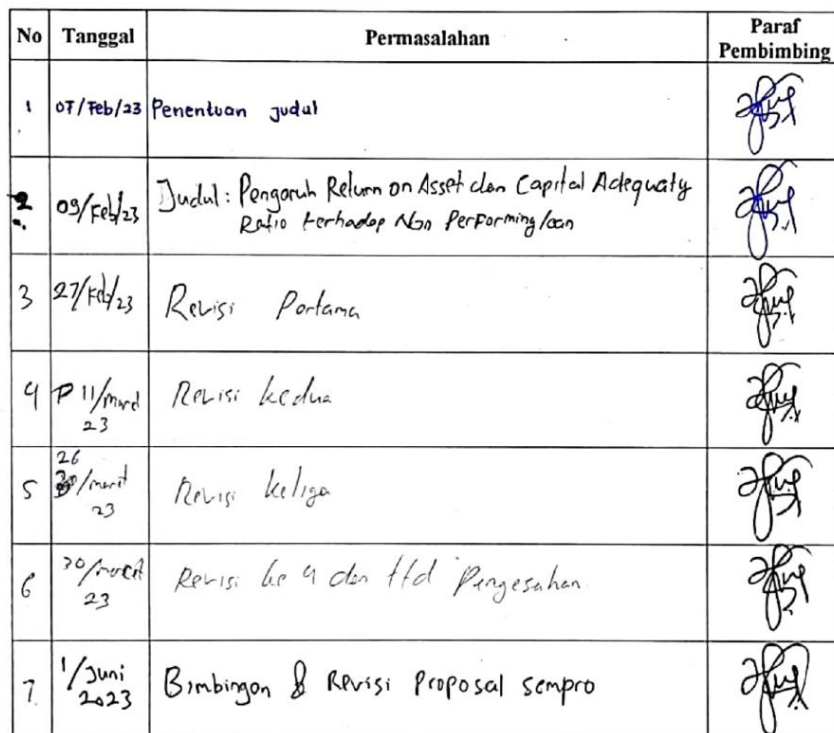 No Tanggal Permasalahan Paraf Pembimbing
1 07/Feb/23 Penentuan judul
2. 09/Feb/23 Judul: Pengaruh Return on Asset dan Capital Adequaty
Ratio terhadap Non Performing loan
3 27/Feb/23 Revisi Pertama
4 11/maret 23 Revisi kedua
5 26/maret 23 Revisi ketiga
6 30/maret 23 Revisi ke 4 dan ttd Pengesahan
7. 1/Juni 2023 Bimbingan & Revisi Proposal sempro